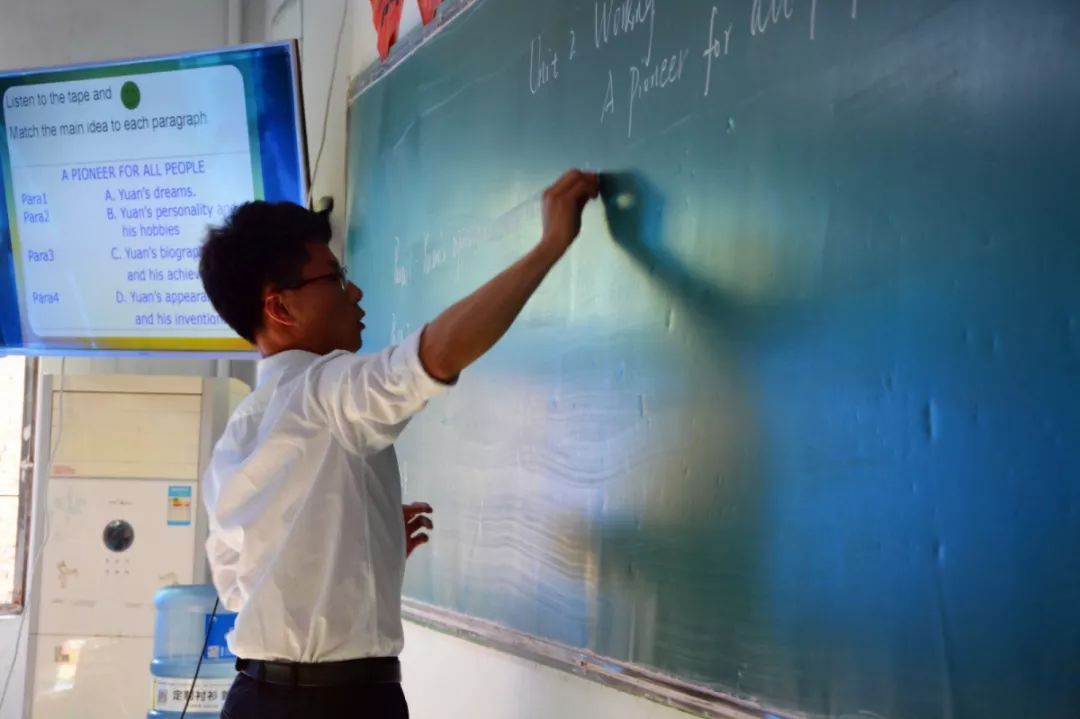 Listen to the tape and
Match the main idea to each paragraph
A PIONEER FOR ALL PEOPLE
Para1 A. Yuan's dreams.
Para2 B. Yuan's personality and
his hobbies
Para3 C. Yuan's biograp
and his achiev
Para4 D. Yuan's appeara
and his invention
Unit 2 Working
A Pioneer for all
定制衬衫